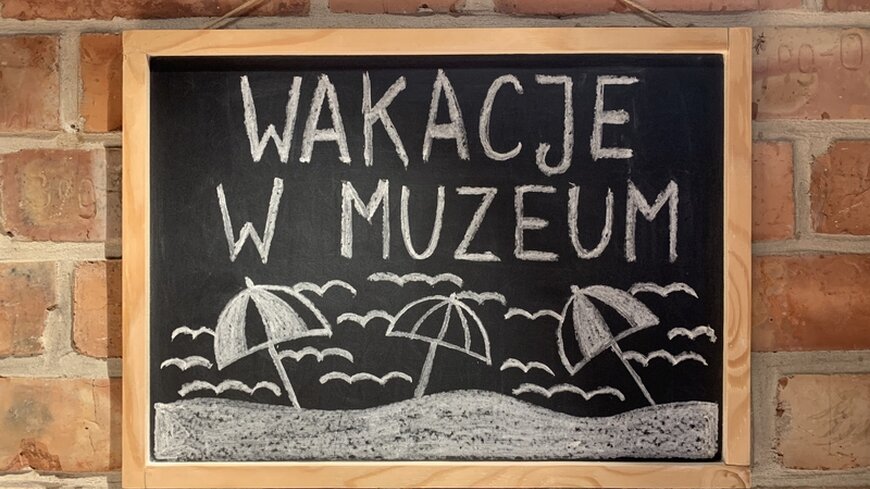 WAKACJE
W MUZEUM